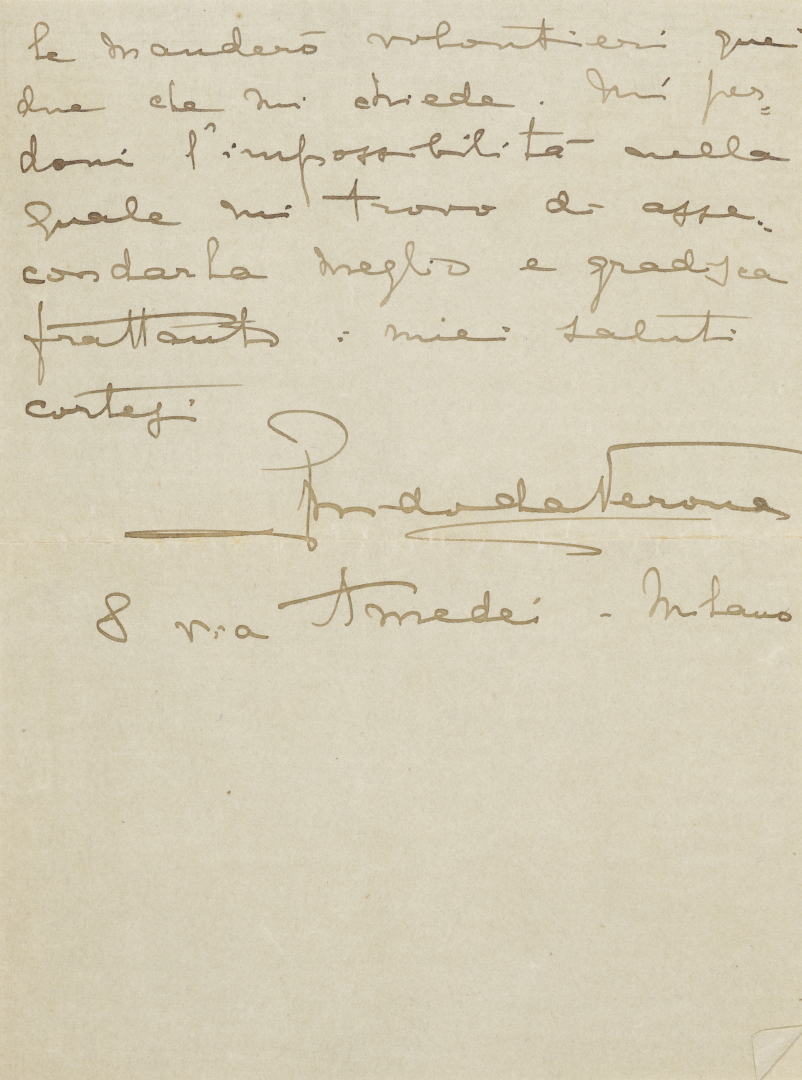 le manderò volontieri quei
due che mi chiede. Mi per=
doni l'impossibilità nella
quale mi trovo di asse=
condarla meglio e gradisca
frattanto i miei saluti
cortesi
Guido da Verona
8 via Amedei - Milano